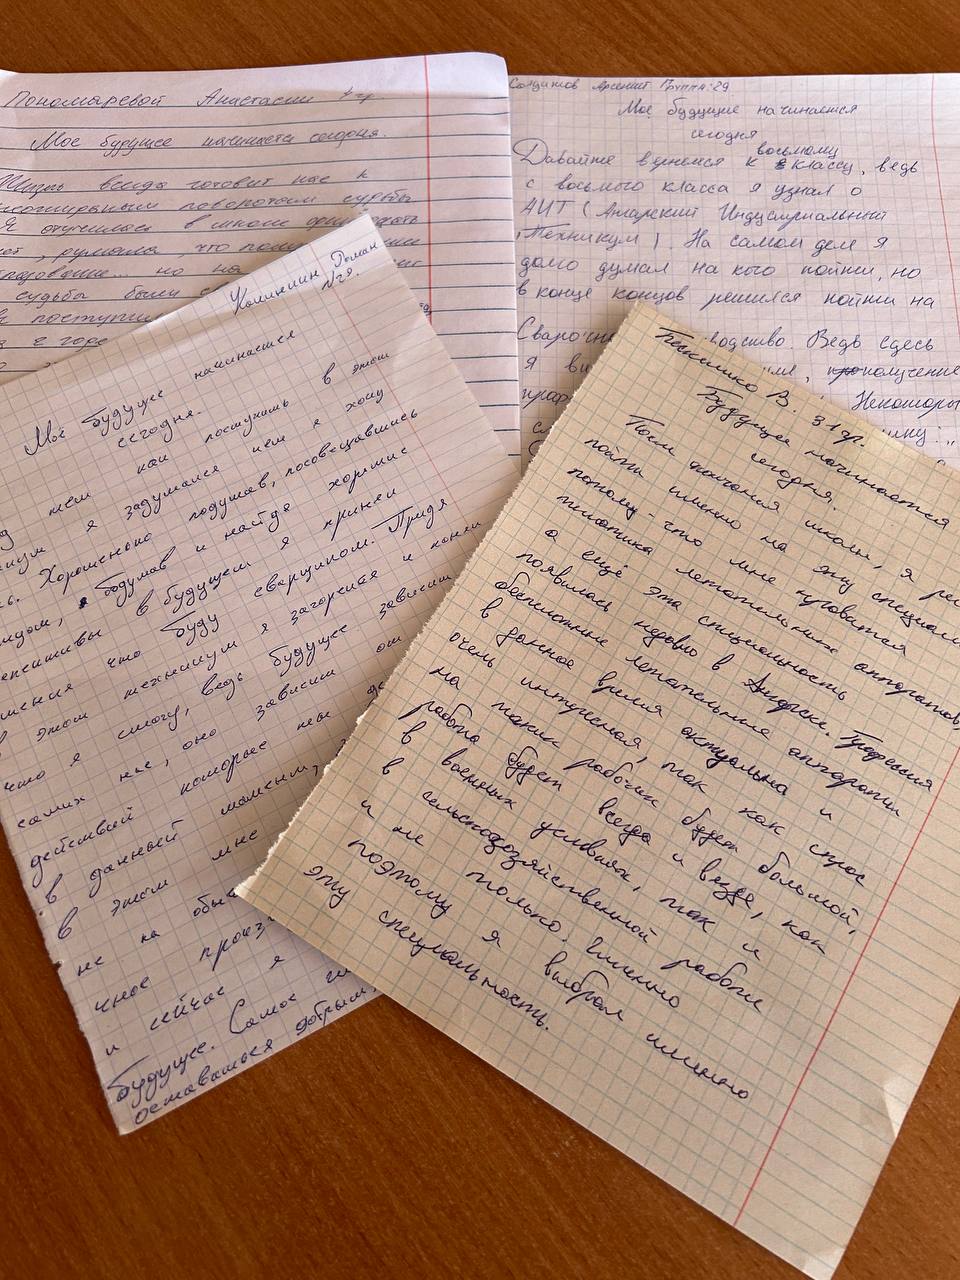 Пономаревой Анастасии
Мое будущее начинается сегодня.
Жизнь всегда готовит нас к
поворотам судьбы
Я отучилась в школе
лет, думала, что
но на
судьбы были
поступи
в горе
Солдатов Арсений Группа:29
Моё будущие начинается
сегодня
восьмому
Давайте вернемся к классу, ведь
с восьмого класса я узнал о
АИТ (Ангарский Индустриальный
Техникум). На самом деле я
долго думал на кого пойти, но
в конце концов решился пойти на
Сварочн водство Ведь сдесь
Я ви получение
Некоторы
Калинин Роман
№29.
Моё будущее начинается
сегодня.
чем как поступить в этот
я задумался кем я хочу
Хорошенько подумав, посовещавшись
подумав и найдя хорошие
в будущем я принял
что буду сварщиком. Придя
в этот техникум я загорелся и понял
что я смогу, ведь будущее зависит
самих нас, оно зависит от
действий которые мы де
в данный момент,
в этом мне
не на обы
чное произ
и сейчас я
будущее. Самое гл
оставаться добрым,
Пекишко В. 31 гр.
Будущее начинается
сегодня.
После окончания школы, я реш
пойти именно на эту специаль
потому-что мне нравится
пилотика летательных аппаратов,
а ещё эта специальность
появилась недавно в Ангарске. Профессия
беспилотные летательные аппараты
в данное время актуальна и
очень интересная, так как спрос
на таких рабочих будет большой,
работа будет всегда и везде, как
в военных условиях, так и
в сельскохозяйственной работе
и не только. Именно
поэтому я выбрал именно
эту специальность.